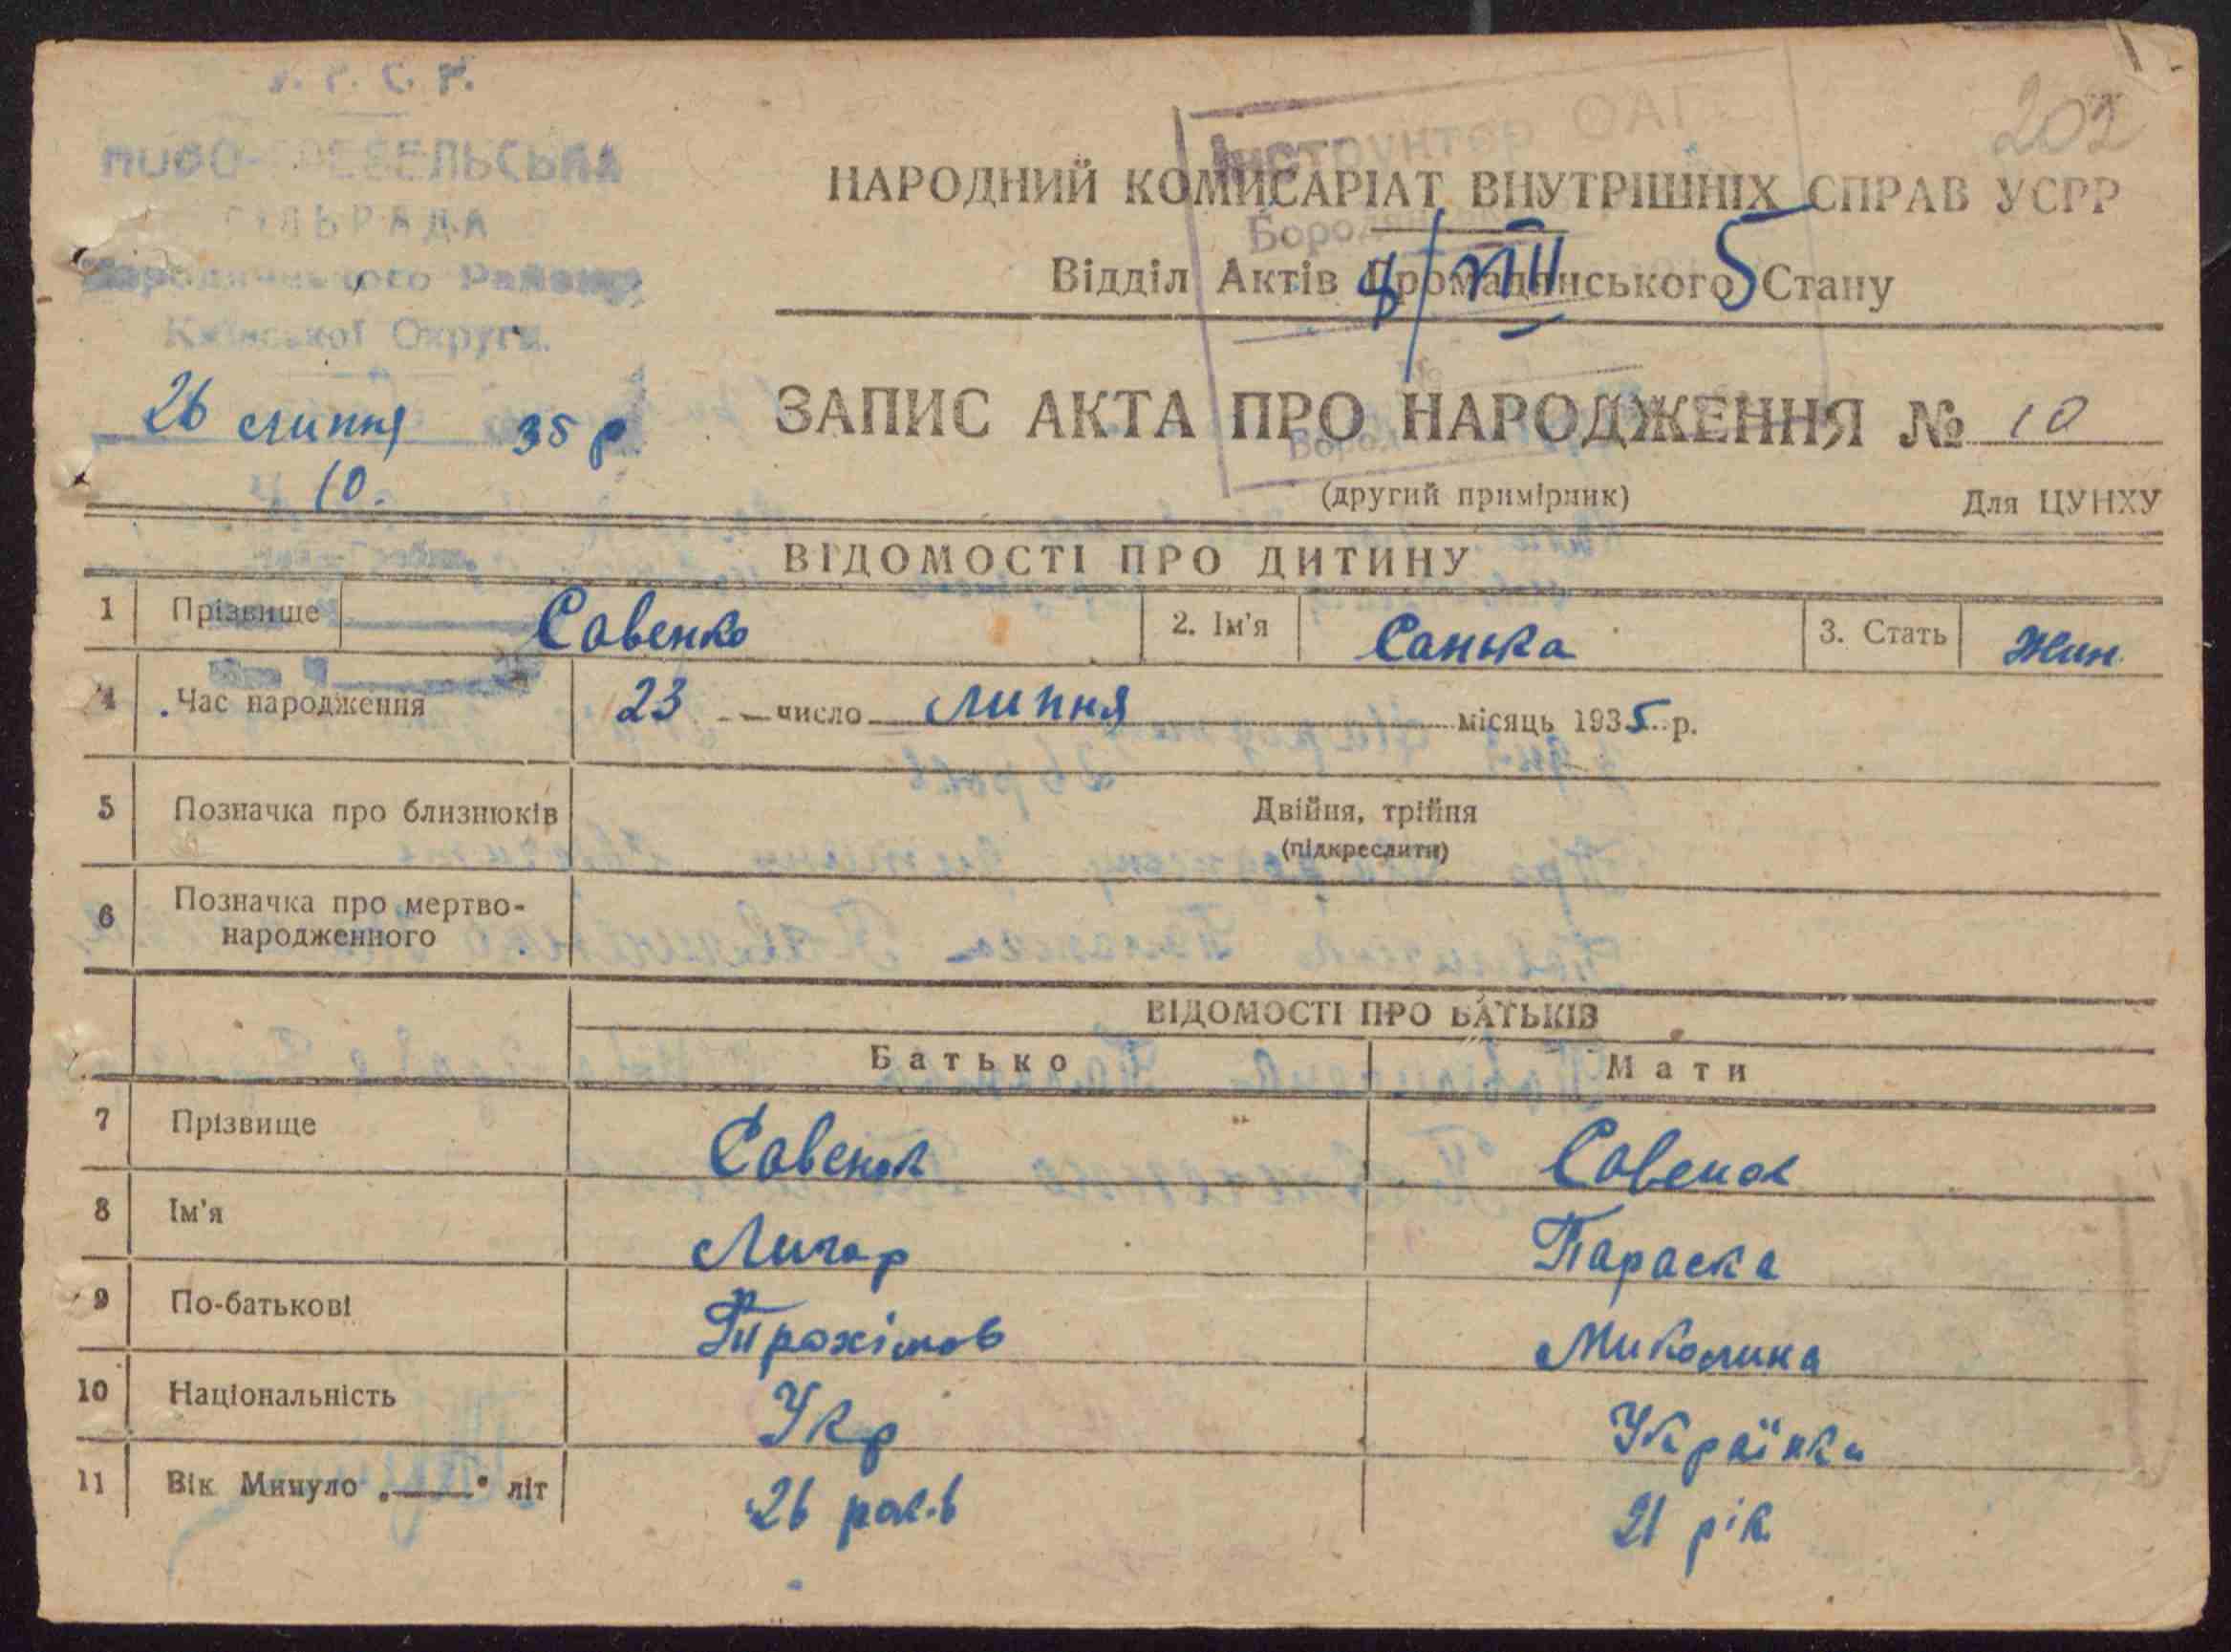 У. Р. С. Р.
СІЛЬРАДА
Бородянського Району
Київської Округи.
26 липня 35 р
10.
202
Інструктор ОАГС
НАРОДНИЙ КОМИСАРІАТ ВНУТРІШНІХ СПРАВ УСРР
Відділ Актів Громадянського Стану
8/VIII 5
ЗАПИС АКТА ПРО НАРОДЖЕННЯ № 10
(другий примірник) Для ЦУНХУ
ВІДОМОСТІ ПРО ДИТИНУ
1 Прізвище Савенко 2. Ім'я Санька 3. Стать жин
4 Час народження 23 число липня місяць 1935 р.
5 Позначка про близнюків Двійня, трійня
(підкреслити)
6 Позначка про мертво-
народженного
ВІДОМОСТІ ПРО БАТЬКІВ
Батько Мати
7 Прізвище Савенок Савенок
8 Ім'я Лигор Параска
9 По-батькові Трохімов Миколина
10 Національність Укр Українка
11 Вік Минуло „ “ літ 26 рок.в 21 рік